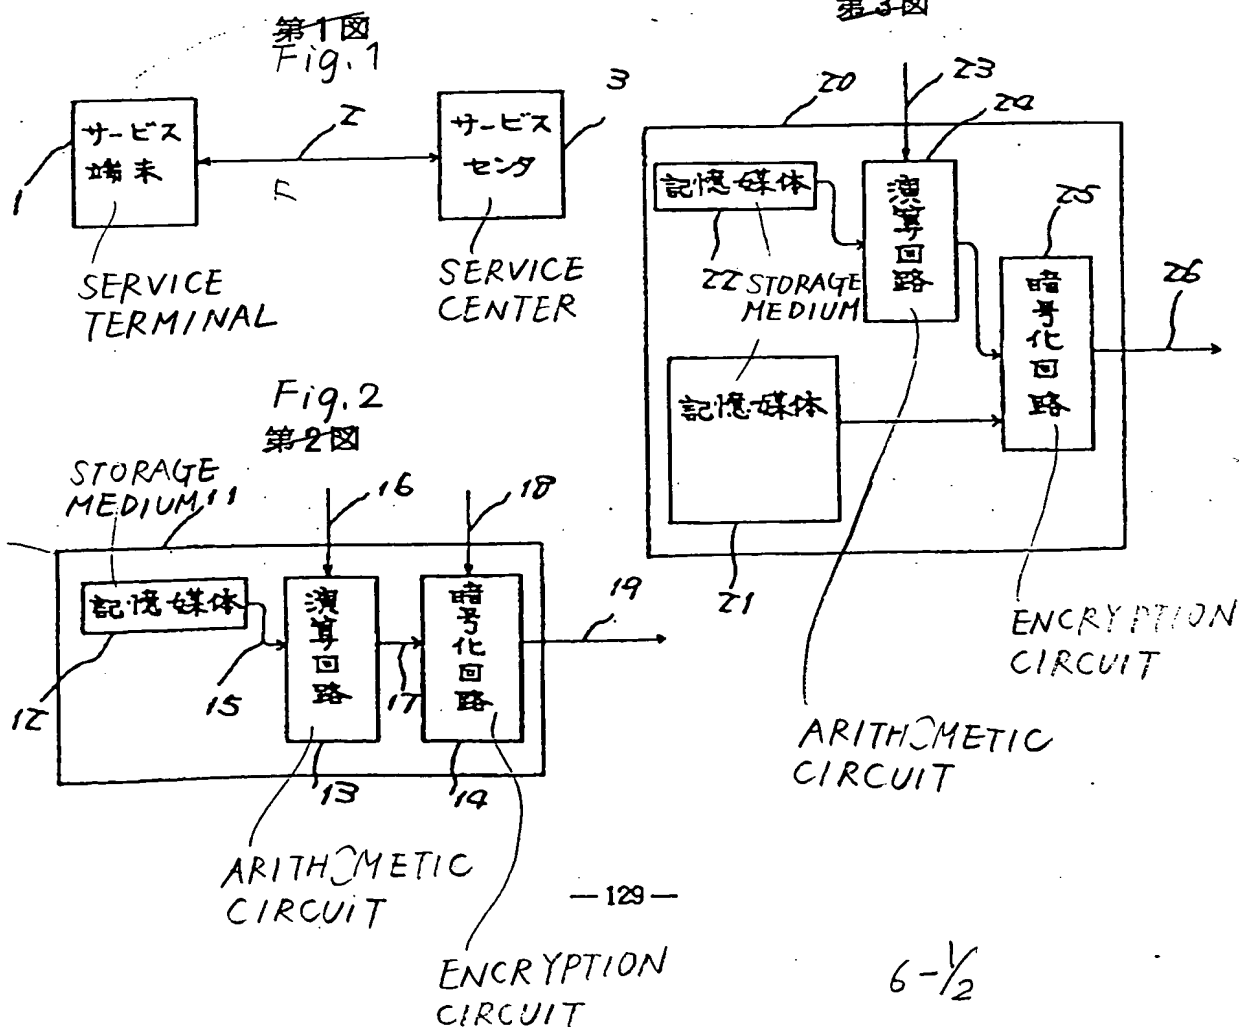 第1図
Fig. 1
1
サービス
端末
2
サービス
センタ
3
SERVICE
TERMINAL
SERVICE
CENTER
Fig. 2
第2図
STORAGE
MEDIUM
11
16
18
記憶媒体
演算回路
暗号化回路
19
12
15
17
13
14
ARITHMETIC
CIRCUIT
ENCRYPTION
CIRCUIT
第3図
20
23
24
記憶媒体
演算回路
25
22
STORAGE
MEDIUM
暗号化回路
26
記憶媒体
21
ENCRYPTION
CIRCUIT
ARITHMETIC
CIRCUIT
—129—
6-1/2